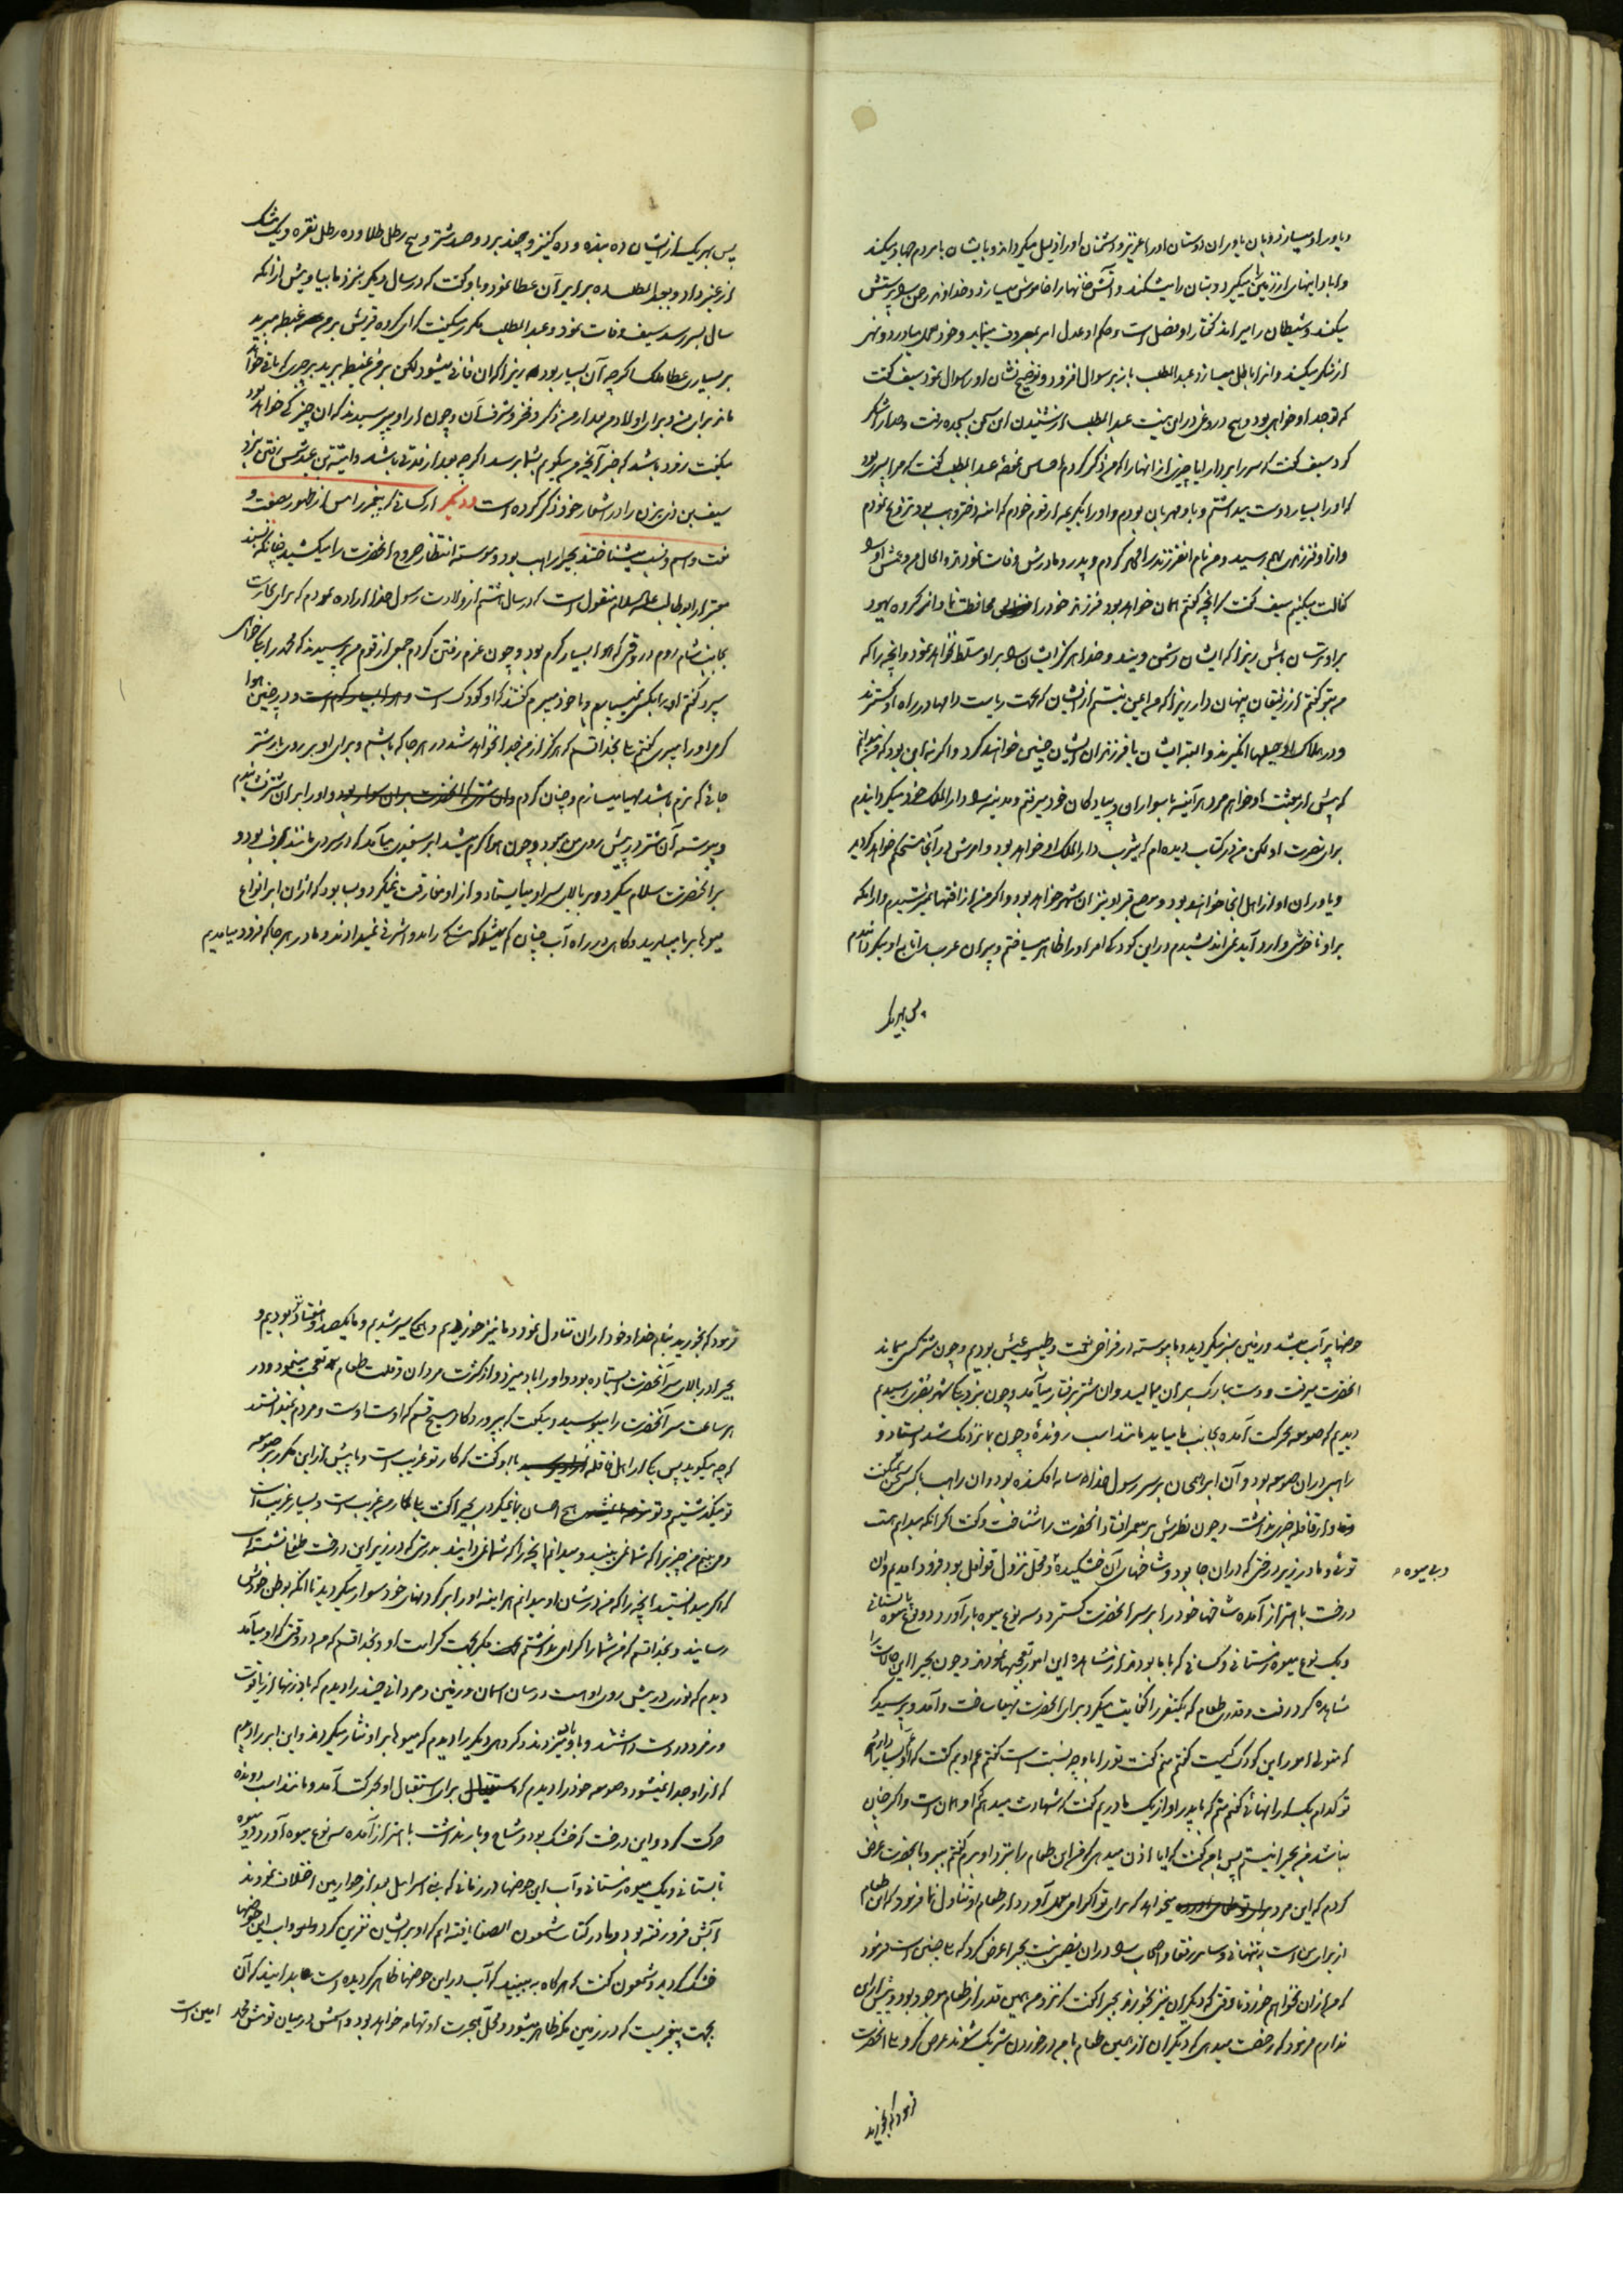 و یاور او میسازد بان یاوران دوستان اورا عزیز و دشمنان اورا ذلیل میگرداند و بایشان با مردم جهاد میکند
میکند و شیطان را میراند گفتار او فصل است و حکم او عدل امر بمعروف مینماید و خود بعمل میاورد و نهی
از منکر میکند و انرا باطل میسازد عبد المطلب باز بر سوال افزود و توضیح نشان او رسول نمود سیف گفت
که تو جد او خواهی بود و هیچ دروغی در این نیست عبد المطلب از شنیدن این سخن بسجده رفت و خدا را شکر
کرد سیف گفت که سر بردار ایا چیزی از انها را که من ذکر کردم احساس نموده عبد المطلب گفت که مرا پسری بود
که او را بسیار دوست میداشتم و باو مهربان بودم و او را بکریمه از قوم خودم که امنه دختر وهب بود تزویج نمودم
و ازاو فرزندی بهم رسید و من نام انفرزند را محمد کردم و پدر و مادرش وفات نمودند و الحال من و عمش او را
کفالت میکنیم سیف گفت که انچه گفتم همان خواهد بود فرزند خود را محافظت نما و از گروه یهود
بر او ترسان باش زیرا که ایشان دشمن ویند و خدا هرگز ایشان را بر او مسلط نخواهد نمود و انچه را که
من بتو گفتم از رفیقان پنهان دار زیرا که من ایمن نیستم از ایشان که بجهت ریاست دامها در راه او گسترند
و در هلاک او حیلها انگیزند و البته ایشان یا فرزندان ایشان چنین خواهند کرد و اگر نه این بود که من میدانم
که پیش از بعثت او خواهم مرد هر آینه با سواران و پیادگان خود میرفتم و مدینه را دار الملک خود میگردانیدم
برای نصرت او لکن من در کتاب دیده ام که یثرب دار الملک او خواهد بود و امرش در آنجا مستحکم خواهد گردید
و یاوران او از اهل انجا خواهند بود و موضع قبر او نیز ان شهر خواهد بود و اگر من از افتها نمیترسیدم و از انکه
بر او ناخوشی وارد آید نمی اندیشیدم در این کودکی امر او را ظاهر میساختم و پیران عرب را تابع او میگردانیدم
پس بهر یک
پس بهر یک از ایشان ده بنده و ده کنیز و چند برد و صد شتر و پنج رطل طلا و ده رطل نقره و یک مشک
از عنبر داد و بعبد المطلب ده برابر آن عطا نمود و باو گفت که در سال دیگر بنزد ما بیا و پیش از انکه
سال بسر رسد سیف وفات نمود و عبد المطلب مکرر میگفت که ای گروه قریش بر من غبطه مبرید
بر بسیاری عطا ملک اگرچه آن بسیار بود زیرا که ان فانی میشود لکن بر من غبطه برید بر چیزی که باقی خواهد
ماند برای من و برای اولاد من بعد از من ذکر و فخر و شرف آن و چون از او میپرسیدند که ان چیز کی خواهد بود
میگفت زود باشد که خبر آنچه من میگویم بشما برسد اگرچه بعد از مدتی باشد و امیة بن عبد شمس رفتن نزد
سیف بن ذی یزن را در اشعار خود ذکر کرده است و دیگر از کسانی که پیغمبر را پیش از ظهور بصفت و
نعت و اسم و نسب میشناختند بحیرا راهب بود و پیوسته انتظار خروج انحضرت را میکشید چنانکه بسند
معتبر از ابو طالب علیه السلام منقول است که در سال هشتم از ولادت رسول خدا اراده نمودم که برای تجارت
بجانب شام روم در وقتی که هوا بسیار گرم بود و چون عزم رفتن کردم جمعی از قوم من پرسیدند که محمد را بکه خواهی
سپرد گفتم او را بکسی نمیسپارم و با خود میبرم گفتند که او کودک است و در چنین هوا
گرمی او را میبری گفتم بلی بخدا قسم که هرگز از من جدا نخواهد شد در هر جا که باشم و برای او بر روی بار شتر
جائی که نرم باشد مهیا میسازم و چنان کردم و او را بر ان شتر نشانیدم
و پیوسته آن شتر در پیش روی من میبود و چون هوا گرم میشد ابر سفیدی میآمد که در سردی مانند برف بود و
بر انحضرت سلام میکرد و بر بالای سر او میایستاد و از او مفارقت نمیکرد و بسا بود که از ان ابر انواع
میوها بر ما میبارید و گاهی در راه آب چنان کم میشد که مشکی را بدو اشرفی نمیدادند و ما در هر جا که فرود میامدیم
حوضها پر آب میشد و زمین سبز میگردید و ما پیوسته در فراخی نعمت و طیب عیش بودیم و چون شتر کسی میماند
انحضرت میرفت و دست مبارک بر ان میمالید و ان شتر برفتار میآمد و چون بنزدیک شهر بصری رسیدیم
دیدیم که صومعه بحرکت آمده بجانب ما میاید مانند اسب رونده و چون بما نزدیک شد ایستاد و
راهبی در ان صومعه بود و آن ابر همچنان بر سر رسول خدا سایه افکنده بود و ان راهب با کسی سخن نمیگفت
و از قافله خبر نداشت و چون نظرش بر محمد افتاد انحضرت را شناخت و گفت اگر انکه میدانم هست
توئی و ما در زیر درختی که در ان جا بود و شاخهای آن خشکیده و محل نزول قوافل بود فرود امدیم و ان
درخت باهتزاز آمده شاخهای خود را بر سر انحضرت گسترد و سه نوع میوه بار آورد دو نوع میوه تابستانی
و یک نوع میوه زمستانی و کسانی که با ما بودند از مشاهده این امور تعجبها نمودند و چون بحیرا این حالات را
مشاهده کرد رفت و قدری طعام که یکنفر را کفایت میکرد برای انحضرت مهیا ساخت و آمد و پرسید که
که متولی امور این کودک کیست گفتم منم گفت تو را با او چه نسبت است گفتم عم اویم گفت که او عم بسیار دارد
تو کدام یک از انهائی گفتم منم که با پدر او از یک مادریم گفت که شهادت میدهم که او همان است و اگر چنان
نباشد من بحیرا نیستم پس بمن گفت که ایا اذن میدهی که من این طعام را بنزد او برم گفتم ببر و بانحضرت عرض
کردم که این مرد میخواهد که برای تو اکرامی بعمل آورد از طعام او تناول نما فرمود که این طعام
از برای من است بتنهائی و سایر رفقا و اصحاب را در ان نصیبی نیست بحیرا عرض کرد که بلی چنین است فرمود
که من از ان نخواهم خورد تا وقتی که دیگران نیز بخورند بحیرا گفت که نزد من همین قدر از طعام موجود بود و بیش از این
ندارم فرمود که رخصت میدهی که دیگران از همین طعام با من در خوردن شریک شوند عرض کرد بلی انحضرت
فرمود که بخورید
فرمود که بخورید بنام خدا و خود از ان تناول نمود و ما نیز خوردیم و همگی سیر شدیم و ما یکصد و هفتاد نفر بودیم و
بحیرا در بالای سر آنحضرت ایستاده بود و او را باد میزد و از کثرت مردان و قلت طعام تعجب مینمود و در
هر ساعت سر آنحضرت را میبوسید و میگفت که بپروردگار مسیح قسم که اوست اوست و مردم نمیدانستند
که چه میگوید پس یکی از اهل قافله باو گفت که کار تو غریب است و ما پیش از این مکرر بر صومعه
تو میگذشتیم و تو هیچ احسان بما نمیکردی بحیرا گفت بلی کار من غریب است و بسیار غریب است
و من میبینم چیزی را که شما نمی بینید و میدانم آنچه را که شما نمی دانید بدرستی که در زیر این درخت طفلی نشسته است
که اگر میدانستید آنچه را که من در شان او میدانم هر اینه او را بر گردنهای خود سوار میکردید تا انکه بوطن خودش
رسانید و بخدا قسم که من شما را اکرام نداشتم مگر بجهت کرامت او و بخدا قسم که من در وقتی که او میآمد
دیدم که نوری در پیش روی او هست در میان اسمان و زمین و مردانی چند را دیدم که بادزنها از یاقوت
و زمرد در دست داشتند و باو باد میزدند و گروهی دیگر را دیدم که میوها بر او نثار میکردند و این ابر را دیدم
که از او جدا نمیشود و صومعه خود را دیدم که برای استقبال او بحرکت آمد و مانند اسب دونده
حرکت کرد و این درخت که خشک بود و شاخ و بار نداشت باهتزاز آمده سه نوع میوه آورد دو میوه
تابستانی و یک میوه زمستانی و آب این حوضها در زمانی که بنی اسرائیل بعد از حواریین اختلاف نمودند
آبش فرو رفته بود و ما در کتاب شمعون الصفا یافته ایم که او بر ایشان نفرین کرد و آب این حوضها
خشک گردید و شمعون گفت که هرگاه ببینید که آب در این حوضها ظاهر گردیده است بدانید که آن
بجهت پیغمبریست که در زمین مکه ظاهر میشود و محل هجرت او تهامه خواهد بود و اسمش در میان قومش محمد امین است